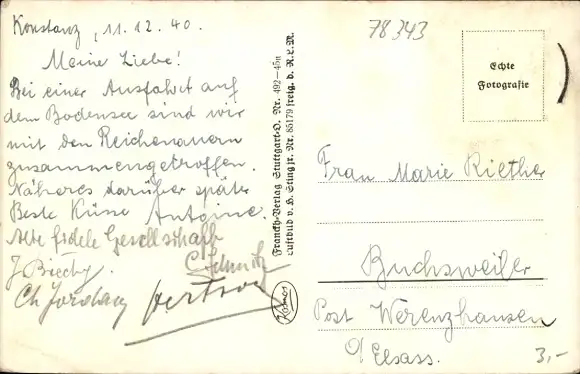 Konstanz, 11.12.40.
Meine Liebe!
Bei einer Ausfahrt auf
dem Bodensee sind wir
mit den Reichenauern
zusammengetroffen.
Näheres darüber später
Beste Küsse Antoine.
Alte fidele Gesellschaft
J Biechy.
Ch Jordan
Franckh-Verlag Stuttgart-O. Nr. 492-45n
Luftbild v. H. Sting jr. Nr. 85179 freig. d. R.L.M.
Kosmos
78343
Echte
Fotografie
Frau Marie
Buchsweiler
Post Werenzhausen
O/ Elsass.
3,-